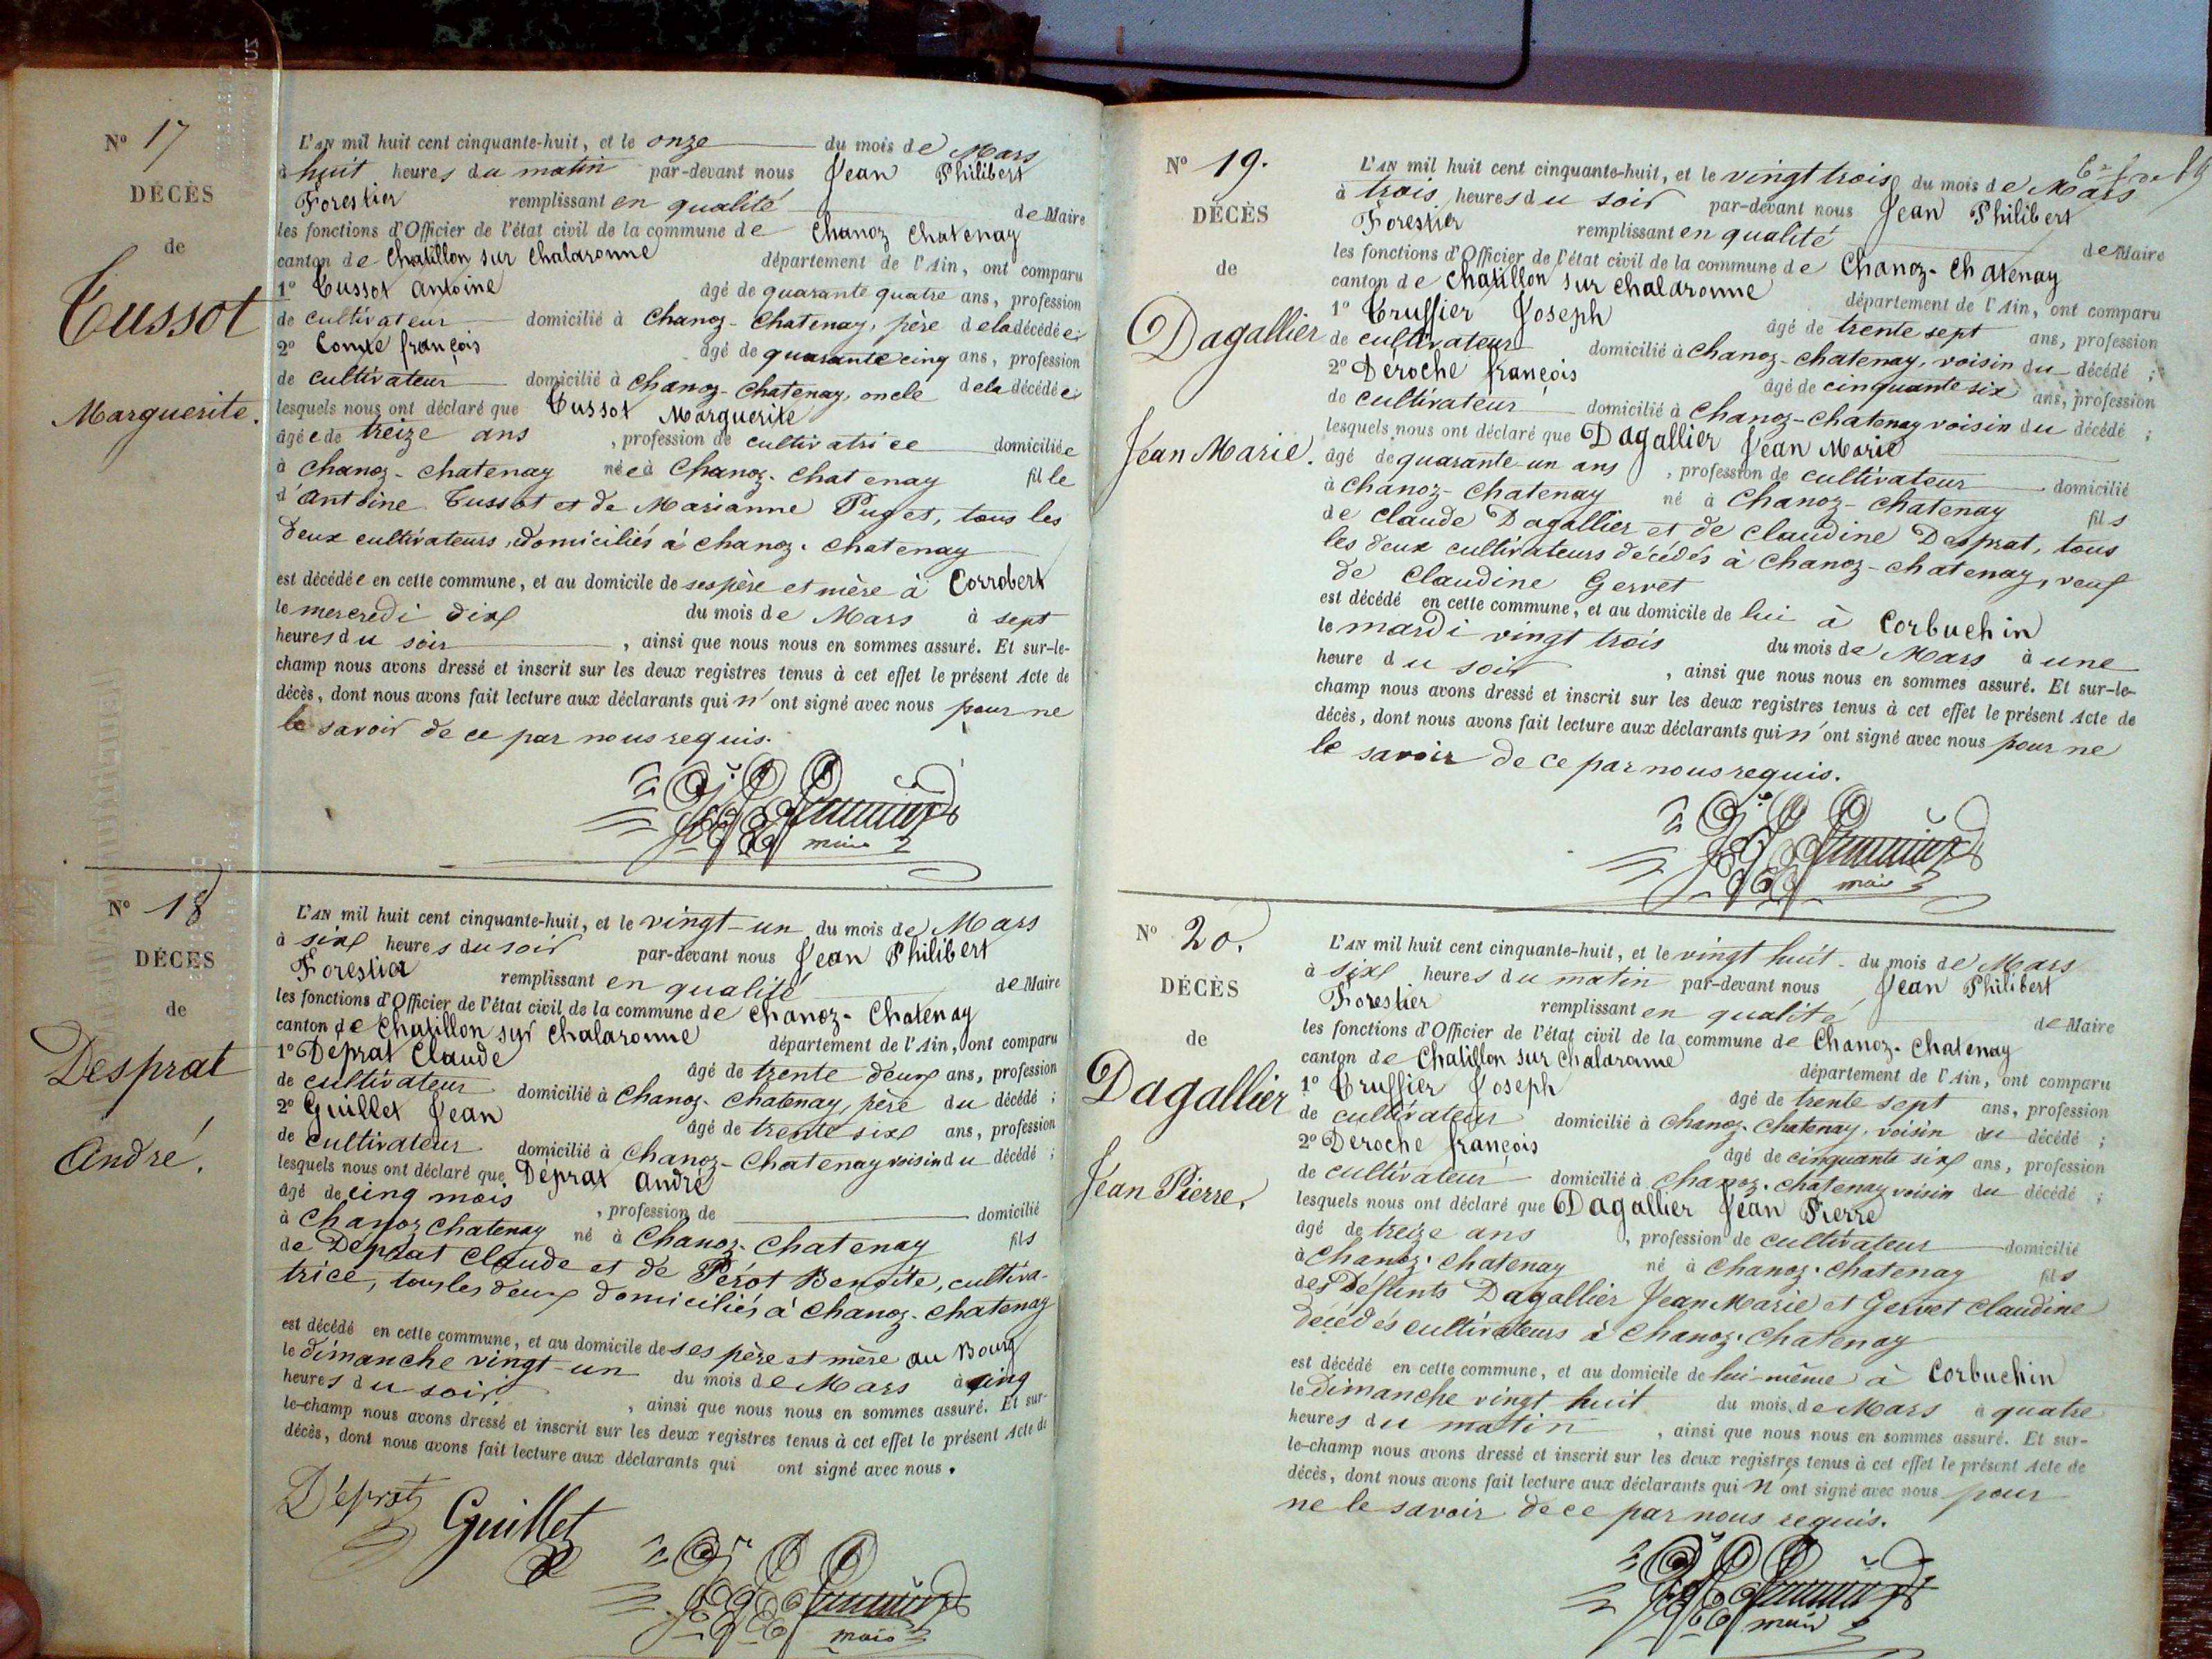 N° 17
DÉCÈS
de
Tussot
Marguerite.
L'AN mil huit cent cinquante-huit, et le onze du mois de Mars
à huit heures du matin par-devant nous Jean Philibert
Forestier remplissant en qualité de Maire
les fonctions d'Officier de l'état civil de la commune de Chanoz Chatenay
canton de Chatillon sur Chalaronne département de l'Ain, ont comparu
1° Tussot Antoine âgé de quarante quatre ans, profession
de cultivateur domicilié à Chanoz-Chatenay, père de la décédée;
2° Comte françois âgé de quarante cinq ans, profession
de cultivateur domicilié à Chanoz-Chatenay, oncle de la décédée;
lesquels nous ont déclaré que Tussot Marguerite
âgée de treize ans, profession de cultivatrice domiciliée
à Chanoz-Chatenay née à Chanoz-Chatenay fille
d'Antoine Tussot et de Marianne Puget, tous les
deux cultivateurs, domiciliés à Chanoz-Chatenay
est décédée en cette commune, et au domicile de ses père et mère à Corrobert
le mercredi dix du mois de Mars à sept
heures du soir, ainsi que nous nous en sommes assuré. Et sur-le-
champ nous avons dressé et inscrit sur les deux registres tenus à cet effet le présent Acte de
décès, dont nous avons fait lecture aux déclarants qui n'ont signé avec nous pour ne
le savoir de ce par nous requis.
N° 18
DÉCÈS
de
Desprat
André.
L'AN mil huit cent cinquante-huit, et le vingt-un du mois de Mars
à six heures du soir par-devant nous Jean Philibert
Forestier remplissant en qualité de Maire
les fonctions d'Officier de l'état civil de la commune de Chanoz-Chatenay
canton de Chatillon sur Chalaronne département de l'Ain, ont comparu
1° Déprat Claude âgé de trente deux ans, profession
de cultivateur domicilié à Chanoz-Chatenay, père du décédé;
2° Guillet Jean âgé de trente six ans, profession
de cultivateur domicilié à Chanoz-Chatenay voisin du décédé;
lesquels nous ont déclaré que Déprat André
âgé de cinq mois, profession de domicilié
à Chanoz Chatenay né à Chanoz-Chatenay fils
de Deprat Claude et de Pérot Benoite, cultiva-
trice, tous les deux domiciliés à Chanoz-Chatenay
est décédé en cette commune, et au domicile de ses père et mère au Bourg
le dimanche vingt-un du mois de Mars à cinq
heures du soir, ainsi que nous nous en sommes assuré. Et sur-
le-champ nous avons dressé et inscrit sur les deux registres tenus à cet effet le présent Acte de
décès, dont nous avons fait lecture aux déclarants qui ont signé avec nous.
Déprat Guillet
N° 19.
DÉCÈS
de
Dagallier
Jean Marie.
L'AN mil huit cent cinquante-huit, et le vingt trois du mois de Mars
à trois heures du soir par-devant nous Jean Philibert
Forestier remplissant en qualité de Maire
les fonctions d'Officier de l'état civil de la commune de Chanoz-Chatenay
canton de Chatillon sur Chalaronne département de l'Ain, ont comparu
1° Truffier Joseph âgé de trente sept ans, profession
de cultivateur domicilié à Chanoz-Chatenay, voisin du décédé;
2° Déroche françois âgé de cinquante six ans, profession
de cultivateur domicilié à Chanoz-Chatenay voisin du décédé;
lesquels nous ont déclaré que Dagallier Jean Marie
âgé de quarante-un ans, profession de cultivateur domicilié
à Chanoz-Chatenay né à Chanoz-Chatenay fils
de Claude Dagallier et de Claudine Desprat, tous
les deux cultivateurs décédés à Chanoz-Chatenay, veuf
de Claudine Gervet
est décédé en cette commune, et au domicile de lui à Corbuchin
le mardi vingt trois du mois de Mars à une
heure du soir, ainsi que nous nous en sommes assuré. Et sur-le-
champ nous avons dressé et inscrit sur les deux registres tenus à cet effet le présent Acte de
décès, dont nous avons fait lecture aux déclarants qui n'ont signé avec nous pour ne
le savoir de ce par nous requis.
N° 20.
DÉCÈS
de
Dagallier
Jean Pierre.
L'AN mil huit cent cinquante-huit, et le vingt huit du mois de Mars
à six heures du matin par-devant nous Jean Philibert
Forestier remplissant en qualité de Maire
les fonctions d'Officier de l'état civil de la commune de Chanoz-Chatenay
canton de Chatillon sur Chalaronne département de l'Ain, ont comparu
1° Truffier Joseph âgé de trente sept ans, profession
de cultivateur domicilié à Chanoz-Chatenay, voisin du décédé;
2° Deroche françois âgé de cinquante six ans, profession
de cultivateur domicilié à Chanoz-Chatenay voisin du décédé;
lesquels nous ont déclaré que Dagallier Jean Pierre
âgé de treize ans, profession de cultivateur domicilié
à Chanoz-Chatenay né à Chanoz-Chatenay fils
des défunts Dagallier Jean Marie et Gervet Claudine
décédés cultivateurs à Chanoz-Chatenay
est décédé en cette commune, et au domicile de lui-même à Corbuchin
le dimanche vingt huit du mois de Mars à quatre
heures du matin, ainsi que nous nous en sommes assuré. Et sur-
le-champ nous avons dressé et inscrit sur les deux registres tenus à cet effet le présent Acte de
décès, dont nous avons fait lecture aux déclarants qui n'ont signé avec nous pour
ne le savoir de ce par nous requis.